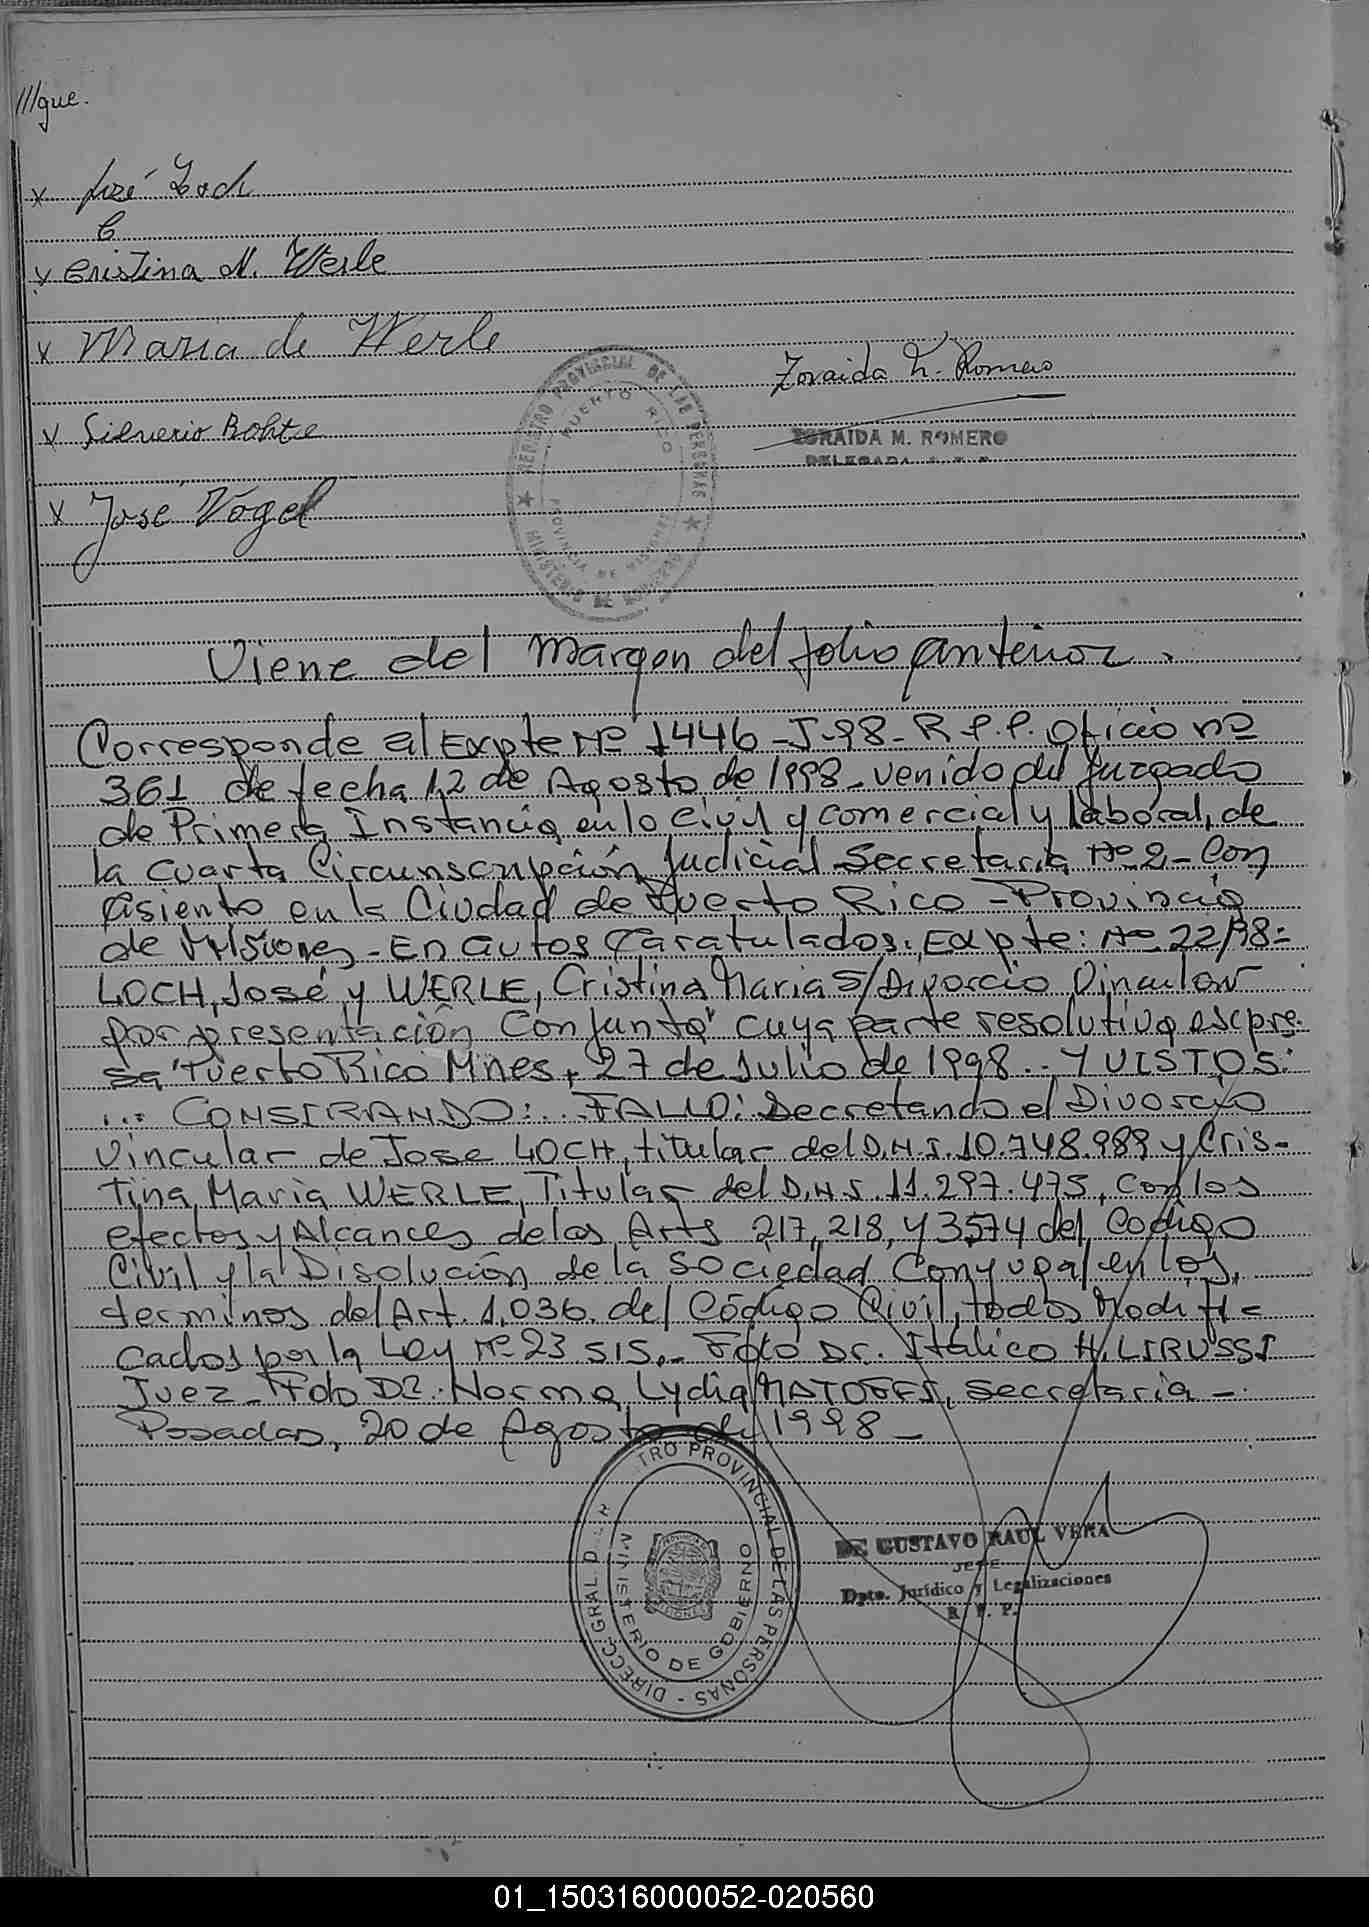 ///gue.
x José Loch
C
x Cristina M. Werle
x Maria de Werle
Zoraida M. Romero
x Silverio Bohte
ZORAIDA M. ROMERO
DELEGADA
x José Vogel
REGISTRO PROVINCIAL DE LAS PERSONAS ★ MINISTERIO DE GOBIERNO ★
PUERTO RICO
PROVINCIA DE MISIONES
Viene del Margen del folio anterior.
Corresponde al Expte Nº 1446-J-98-R.P.P. Oficio nº
361 de fecha 12 de Agosto de 1998-venido del Juzgado
de Primera Instancia en lo Civil y comercial y laboral, de
la Cuarta Circunscripción Judicial Secretaria Nº 2-Con
asiento en la Ciudad de Puerto Rico-Provincia
de Misiones-En autos Caratulados: Expte: Nº 22/98=
LOCH, José y WERLE, Cristina Maria S/Divorcio Vincular
por presentación Conjunta" cuya parte resolutiva expre-
sa "Puerto Rico Mnes, 27 de Julio de 1998... Y VISTOS:
...: CONSIRANDO:... FALLO: Decretando el Divorcio
Vincular de Jose LOCH, titular del D.N.I. 10.748.989 y Cris-
tina Maria WERLE, Titular del D.N.I. 11.297.475, con los
efectos y Alcances de los Arts 217, 218, y 3574 del Codigo
Civil y la Disolución de la Sociedad Conyugal en los,
terminos del Art. 1.036. del Código Civil, todos Modifi-
cados por la Ley Nº 23 515.- Fdo Dr. Itálico H. LIRUSSI
Juez-Fdo DR. Norma Lydia, Secretaria-.
Posadas, 20 de Agosto de 1998-
DIRECC. GRAL. DEL R TRO PROVINCIAL DE LAS PERSONAS -
MINISTERIO DE GOBIERNO
GUSTAVO RAUL VERA
JEFE
Dpto. Jurídico y Legalizaciones
R. P. P.
01_150316000052-020560